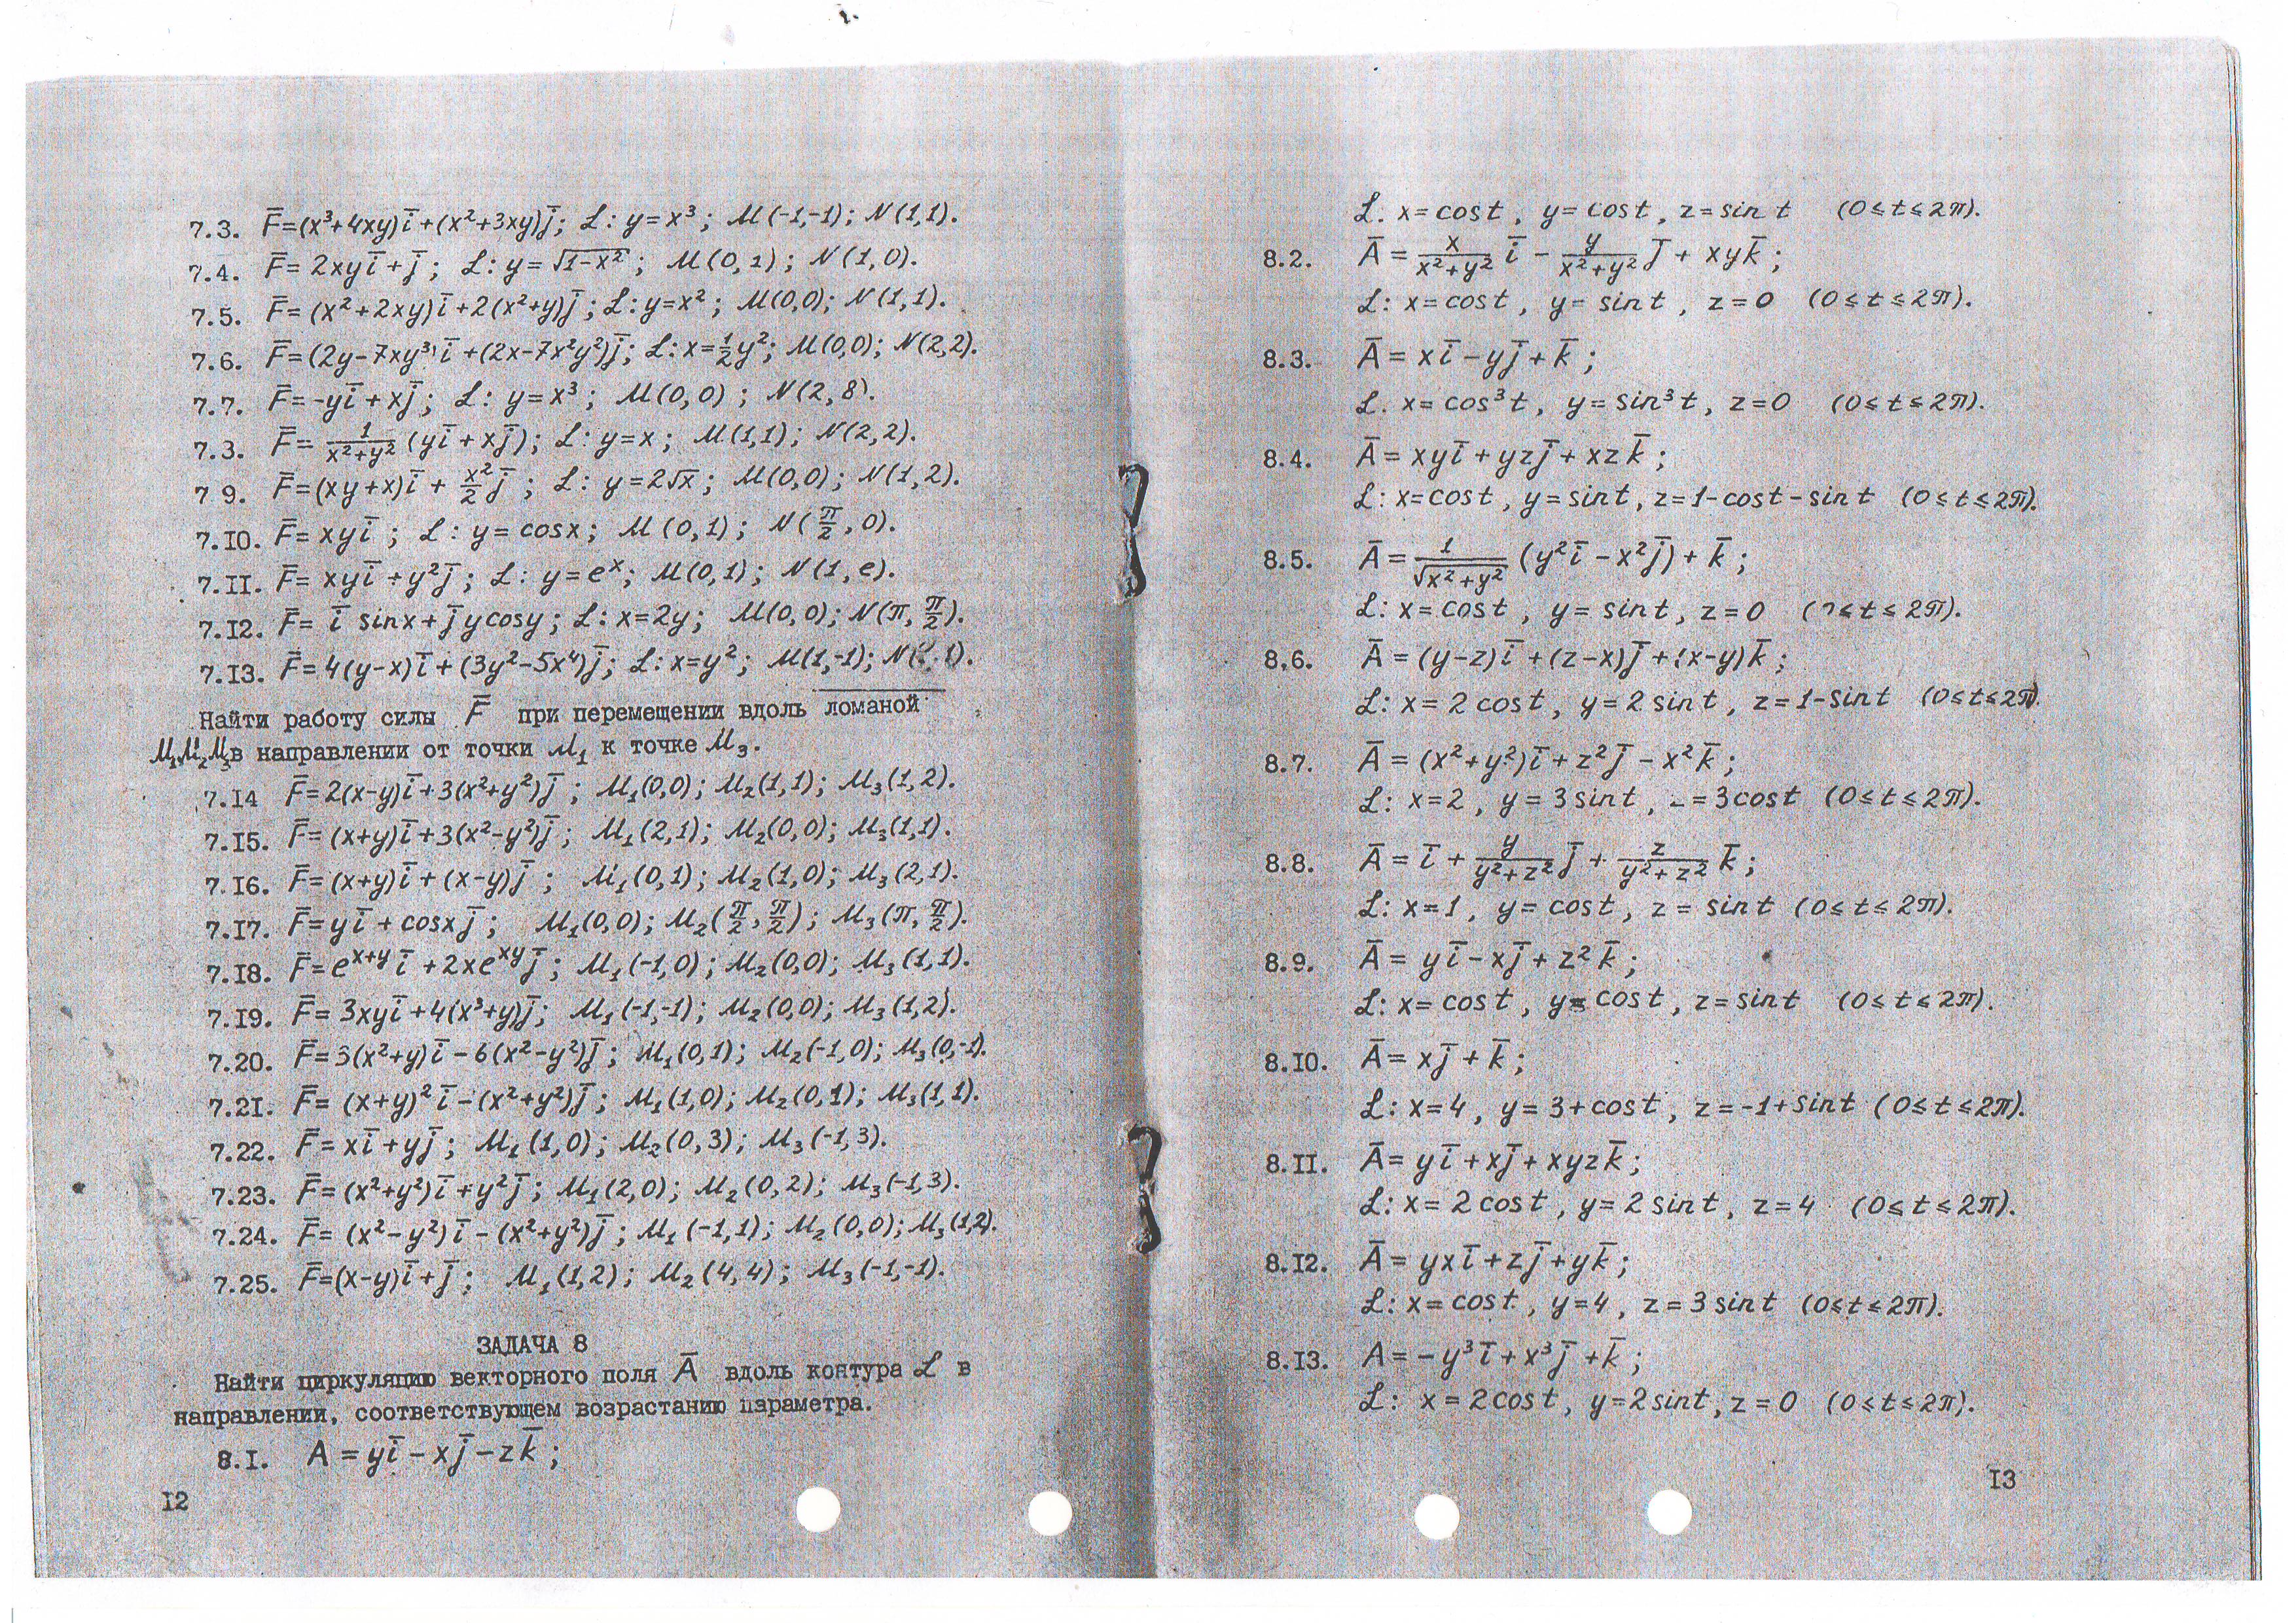 7.3. F̄=(x³+4xy)ī+(x²+3xy)j̄; L: y=x³; M(-1,-1); N(1,1).
7.4. F̄=2xyī+j̄; L: y=√(1-x²); M(0,1); N(1,0).
7.5. F̄=(x²+2xy)ī+2(x²+y)j̄; L: y=x²; M(0,0); N(1,1).
7.6. F̄=(2y-7xy³)ī+(2x-7x²y²)j̄; L: x=1/2 y²; M(0,0); N(2,2).
7.7. F̄=-yī+xj̄; L: y=x³; M(0,0); N(2,8).
7.3. F̄=1/(x²+y²) (yī+xj̄); L: y=x; M(1,1); N(2,2).
7 9. F̄=(xy+x)ī+x²/2 j̄; L: y=2√x; M(0,0); N(1,2).
7.10. F̄=xyī; L: y=cosx; M(0,1); N(π/2,0).
7.11. F̄=xyī+y²j̄; L: y=eˣ; M(0,1); N(1,e).
7.12. F̄=ī sinx+j̄ycosy; L: x=2y; M(0,0); N(π,π/2).
7.13. F̄=4(y-x)ī+(3y²-5x⁴)j̄; L: x=y²; M(1,-1); N( 1).
Найти работу силы F̄ при перемещении вдоль ломаной
M₁M₂M₃ в направлении от точки M₁ к точке M₃.
7.14 F̄=2(x-y)ī+3(x²+y²)j̄; M₁(0,0); M₂(1,1); M₃(1,2).
7.15. F̄=(x+y)ī+3(x²-y²)j̄; M₁(2,1); M₂(0,0); M₃(1,1).
7.16. F̄=(x+y)ī+(x-y)j̄; M₁(0,1); M₂(1,0); M₃(2,1).
7.17. F̄=yī+cosxj̄; M₁(0,0); M₂(π/2,π/2); M₃(π,π/2).
7.18. F̄=eˣ⁺ʸī+2xeˣʸj̄; M₁(-1,0); M₂(0,0); M₃(1,1).
7.19. F̄=3xyī+4(x³+y)j̄; M₁(-1,-1); M₂(0,0); M₃(1,2).
7.20. F̄=3(x²+y)ī-6(x²-y²)j̄; M₁(0,1); M₂(-1,0); M₃(0,-1).
7.21. F̄=(x+y)²ī-(x²+y²)j̄; M₁(1,0); M₂(0,1); M₃(1,1).
7.22. F̄=xī+yj̄; M₁(1,0); M₂(0,3); M₃(-1,3).
7.23. F̄=(x²+y²)ī+y²j̄; M₁(2,0); M₂(0,2); M₃(-1,3).
7.24. F̄=(x²-y²)ī-(x²+y²)j̄; M₁(-1,1); M₂(0,0); M₃(1,2).
7.25. F̄=(x-y)ī+j̄; M₁(1,2); M₂(4,4); M₃(-1,-1).
ЗАДАЧА 8
Найти циркуляцию векторного поля Ā вдоль контура L в
направлении, соответствующем возрастанию параметра.
8.1. A=yī-xj̄-zk̄;
12
L. x=cost, y=cost, z=sint (0≤t≤2π).
8.2. Ā=x/(x²+y²) ī-y/(x²+y²) j̄+xyk̄;
L: x=cost, y=sint, z=0 (0≤t≤2π).
8.3. Ā=xī-yj̄+k̄;
L. x=cos³t, y=sin³t, z=0 (0≤t≤2π).
8.4. Ā=xyī+yzj̄+xzk̄;
L: x=cost, y=sint, z=1-cost-sint (0≤t≤2π).
8.5. Ā=1/√(x²+y²) (y²ī-x²j̄)+k̄;
L: x=cost, y=sint, z=0 ( ≤t≤2π).
8,6. Ā=(y-z)ī+(z-x)j̄+(x-y)k̄;
L: x=2cost, y=2sint, z=1-sint (0≤t≤2π).
8.7. Ā=(x²+y²)ī+z²j̄-x²k̄;
L: x=2, y=3sint, z=3cost (0≤t≤2π).
8.8. Ā=ī+y/(y²+z²) j̄+z/(y²+z²) k̄;
L: x=1, y=cost, z=sint (0≤t≤2π).
8.9. Ā=yī-xj̄+z²k̄;
L: x=cost, y=cost, z=sint (0≤t≤2π).
8.10. Ā=xj̄+k̄;
L: x=4, y=3+cost, z=-1+sint (0≤t≤2π).
8.11. Ā=yī+xj̄+xyzk̄;
L: x=2cost, y=2sint, z=4 (0≤t≤2π).
8.12. Ā=yxī+zj̄+yk̄;
L: x=cost, y=4, z=3sint (0≤t≤2π).
8.13. A=-y³ī+x³j̄+k̄;
L: x=2cost, y=2sint, z=0 (0≤t≤2π).
13